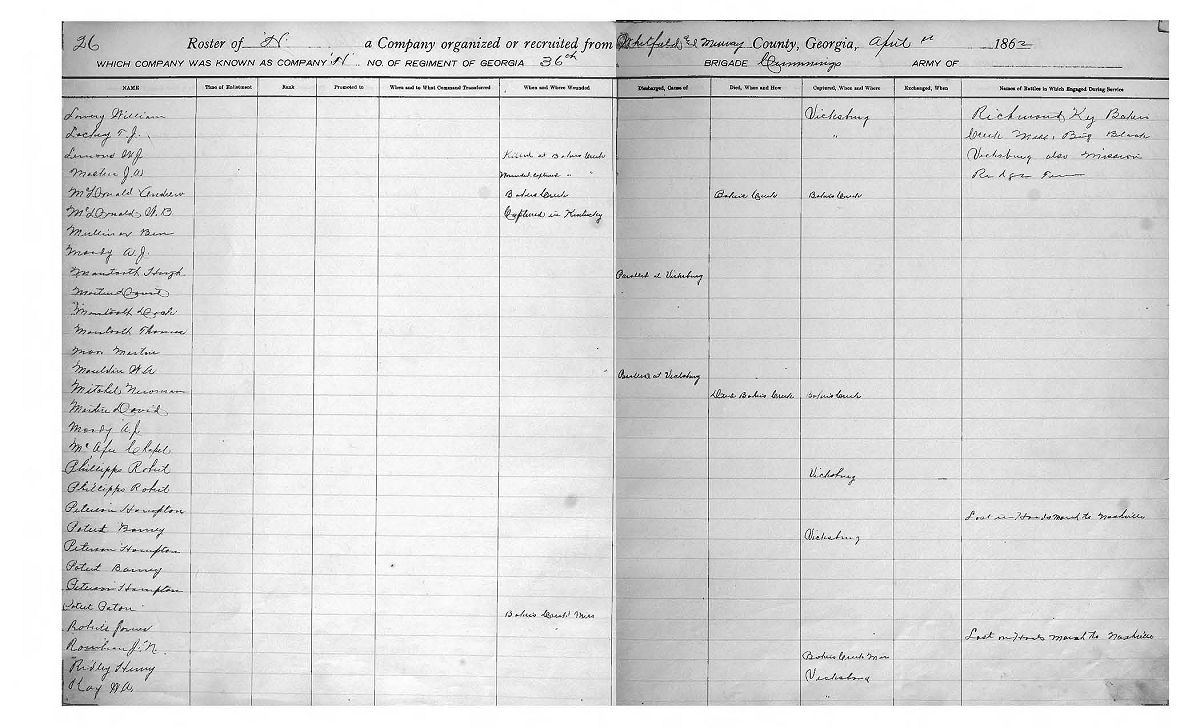 26 Roster of "H" a Company organized or recruited from Whitfield & Murray County, Georgia, April 1862
WHICH COMPANY WAS KNOWN AS COMPANY "H" NO. OF REGIMENT OF GEORGIA 36th BRIGADE Cummings ARMY OF
NAME Time of Enlistment Rank Promoted to When and to What Command Transferred When and Where Wounded Discharged, Cause of Died, When and How Captured, When and Where Exchanged, When Names of Battles in Which Engaged During Service
Lowery William Vicksburg Richmond, Ky Bakers
Lackey T. J. " Creek Miss, Big Black
Lemons W. J. Killed at Bakers Creek Vicksburg also Mission
J. W. Wounded, captured " " Ridge
McDonald Andrew Bakers Creek Bakers Creek Bakers Creek
McDonald, W. B. Captured in Kentucky
Ben
Moody A. J.
Mantooth Hugh Paroled at Vicksburg
Martin David
Mantooth
Mantooth Thomas
Martin
Mauldin W. A. Paroled at Vicksburg
Mitchel Newman Died Bakers Creek Bakers Creek
Martin David
Moody A. J.
McAfee
Phillipps Robert Vicksburg
Phillipps Robert
Peterson Hampton Lost in Hoods March to Nashville
Poteet Barney Vicksburg
Peterson Hampton
Poteet Barney
Peterson Hampton
Poteet Bakers Creek Miss
Roberts James Lost on Hoods March to Nashville
J. N. Bakers Creek Miss
Ridley Henry Vicksburg
Ray W. A. "